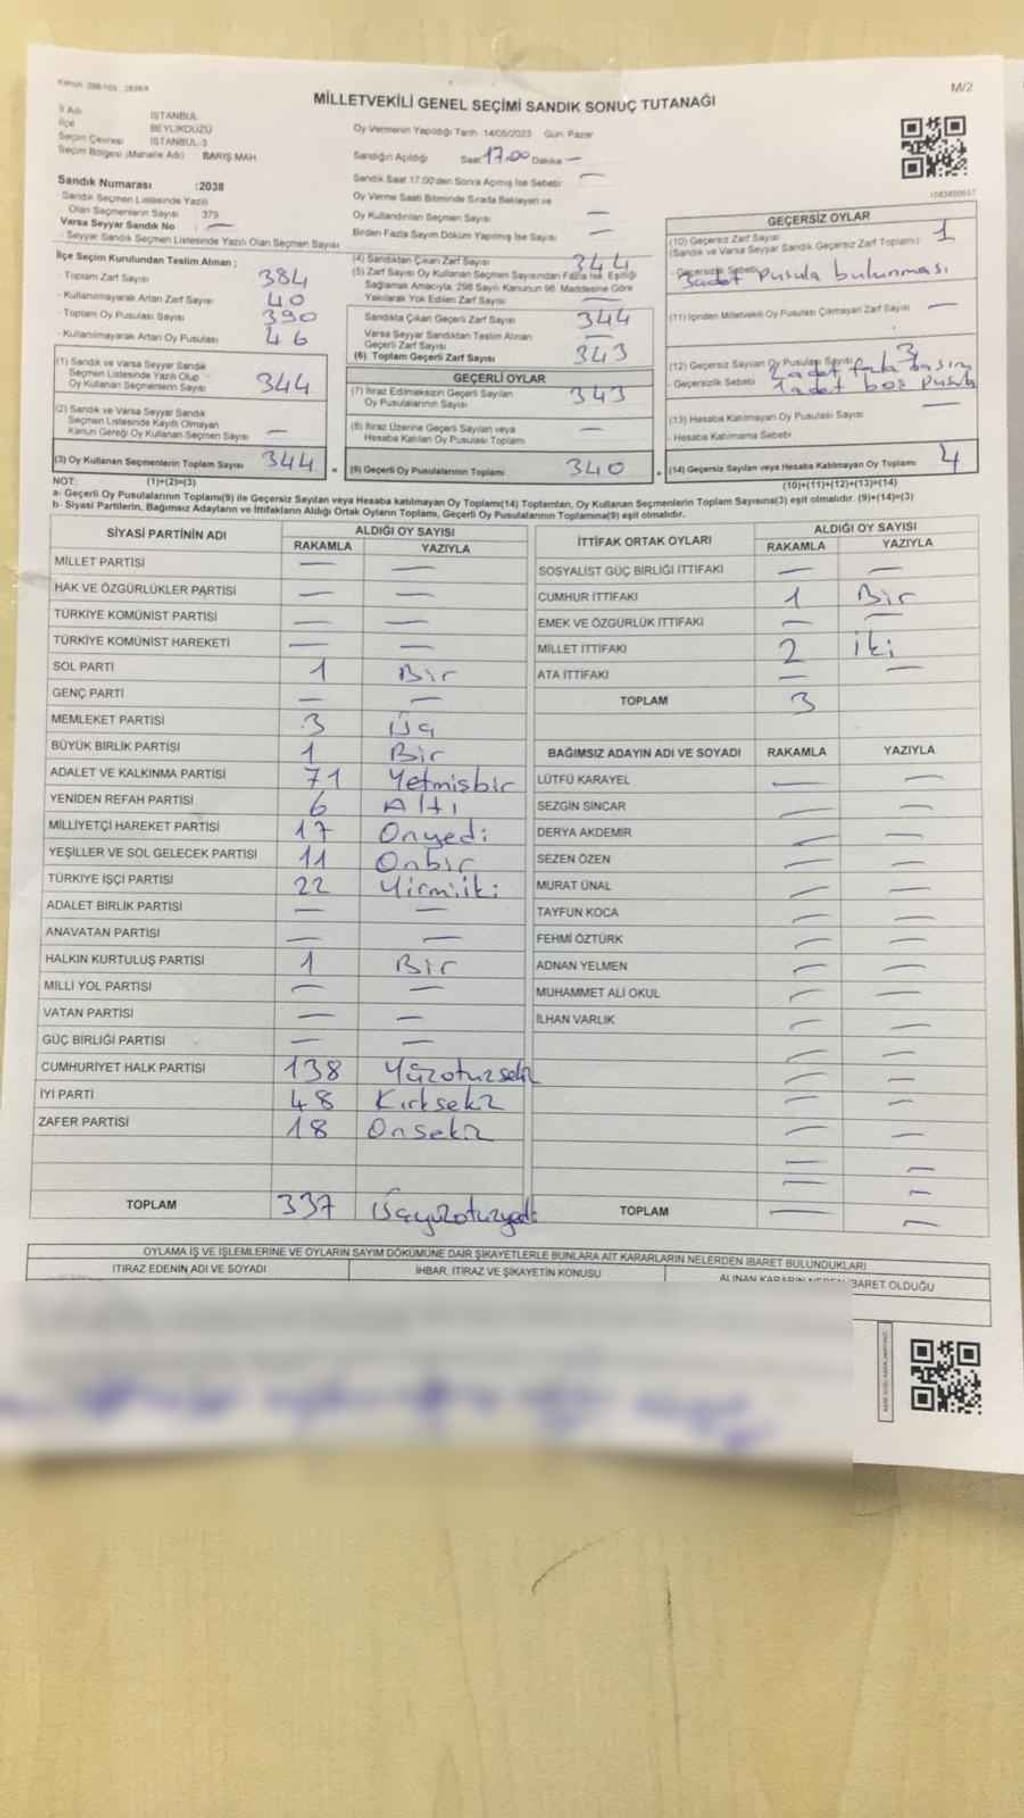 MİLLETVEKİLİ GENEL SEÇİMİ SANDIK SONUÇ TUTANAĞI
M/2
İl Adı İSTANBUL
İlçe BEYLİKDÜZÜ
Seçim Çevresi İSTANBUL-3
Seçim Bölgesi (Mahalle Adı) BARIŞ MAH.
Oy Vermenin Yapıldığı Tarih: 14/05/2023 Gün: Pazar
Sandığın Açıldığı Saat 17.00 Dakika —
Sandık Saat 17:00'den Sonra Açılmış İse Sebebi: —
Sandık Numarası :2038
Sandık Seçmen Listesinde Yazılı
Olan Seçmenlerin Sayısı 379
Varsa Seyyar Sandık No —
Seyyar Sandık Seçmen Listesinde Yazılı Olan Seçmen Sayısı
Oy Verme Saati Bitiminde Sırada Bekleyen ve
Oy Kullandırılan Seçmen Sayısı —
Birden Fazla Sayım Döküm Yapılmış İse Sayısı —
İlçe Seçim Kurulundan Teslim Alınan;
- Toplam Zarf Sayısı 384
- Kullanılmayarak Artan Zarf Sayısı 40
- Toplam Oy Pusulası Sayısı 390
- Kullanılmayarak Artan Oy Pusulası 46
(1) Sandık ve Varsa Seyyar Sandık
Seçmen Listesinde Yazılı Olup
Oy Kullanan Seçmenlerin Sayısı 344
(2) Sandık ve Varsa Seyyar Sandık
Seçmen Listesinde Kayıtlı Olmayan
Kanun Gereği Oy Kullanan Seçmen Sayısı —
(3) Oy Kullanan Seçmenlerin Toplam Sayısı 344
(1)+(2)=(3)
(4) Sandıktan Çıkan Zarf Sayısı 344
(5) Zarf Sayısı Oy Kullanan Seçmen Sayısından Fazla İse, Eşitliği
Sağlamak Amacıyla, 298 Sayılı Kanunun 98. Maddesine Göre
Yakılarak Yok Edilen Zarf Sayısı —
Sandıkta Çıkan Geçerli Zarf Sayısı 344
Varsa Seyyar Sandıktan Teslim Alınan
Geçerli Zarf Sayısı —
(6) Toplam Geçerli Zarf Sayısı 343
GEÇERLİ OYLAR
(7) İtiraz Edilmeksizin Geçerli Sayılan
Oy Pusulalarının Sayısı 343
(8) İtiraz Üzerine Geçerli Sayılan veya
Hesaba Katılan Oy Pusulası Toplamı —
(9) Geçerli Oy Pusulalarının Toplamı 340
GEÇERSİZ OYLAR
(10) Geçersiz Zarf Sayısı
(Sandık ve Varsa Seyyar Sandık Geçersiz Zarf Toplamı) 1
- Geçersizlik Sebebi pusula bulunması
(11) İçinden Milletvekili Oy Pusulası Çıkmayan Zarf Sayısı —
(12) Geçersiz Sayılan Oy Pusulası Sayısı 3
- Geçersizlik Sebebi 2 adet fazla basım
1 adet boş pusula
(13) Hesaba Katılmayan Oy Pusulası Sayısı —
- Hesaba Katılmama Sebebi
(14) Geçersiz Sayılan veya Hesaba Katılmayan Oy Toplamı 4
(10)+(11)+(12)+(13)=(14)
NOT:
a- Geçerli Oy Pusulalarının Toplamı(9) ile Geçersiz Sayılan veya Hesaba katılmayan Oy Toplamı(14) Toplamları, Oy Kullanan Seçmenlerin Toplam Sayısına(3) eşit olmalıdır. (9)+(14)=(3)
b- Siyasi Partilerin, Bağımsız Adayların ve İttifakların Aldığı Ortak Oyların Toplamı, Geçerli Oy Pusulalarının Toplamına(9) eşit olmalıdır.
SİYASİ PARTİNİN ADI ALDIĞI OY SAYISI
RAKAMLA YAZIYLA
MİLLET PARTİSİ — —
HAK VE ÖZGÜRLÜKLER PARTİSİ — —
TÜRKİYE KOMÜNİST PARTİSİ — —
TÜRKİYE KOMÜNİST HAREKETİ — —
SOL PARTİ 1 Bir
GENÇ PARTİ — —
MEMLEKET PARTİSİ 3 Üç
BÜYÜK BİRLİK PARTİSİ 1 Bir
ADALET VE KALKINMA PARTİSİ 71 Yetmişbir
YENİDEN REFAH PARTİSİ 6 Altı
MİLLİYETÇİ HAREKET PARTİSİ 17 Onyedi
YEŞİLLER VE SOL GELECEK PARTİSİ 11 Onbir
TÜRKİYE İŞÇİ PARTİSİ 22 Yirmiiki
ADALET BİRLİK PARTİSİ — —
ANAVATAN PARTİSİ — —
HALKIN KURTULUŞ PARTİSİ 1 Bir
MİLLİ YOL PARTİSİ — —
VATAN PARTİSİ — —
GÜÇ BİRLİĞİ PARTİSİ — —
CUMHURİYET HALK PARTİSİ 138 Yüzotuzsekiz
İYİ PARTİ 48 Kırksekiz
ZAFER PARTİSİ 18 Onsekiz
TOPLAM 337 Üçyüzotuzyedi
İTTİFAK ORTAK OYLARI ALDIĞI OY SAYISI
RAKAMLA YAZIYLA
SOSYALİST GÜÇ BİRLİĞİ İTTİFAKI — —
CUMHUR İTTİFAKI 1 Bir
EMEK VE ÖZGÜRLÜK İTTİFAKI — —
MİLLET İTTİFAKI 2 İki
ATA İTTİFAKI — —
TOPLAM 3
BAĞIMSIZ ADAYIN ADI VE SOYADI RAKAMLA YAZIYLA
LÜTFÜ KARAYEL — —
SEZGİN SİNCAR — —
DERYA AKDEMİR — —
SEZEN ÖZEN — —
MURAT ÜNAL — —
TAYFUN KOCA — —
FEHMİ ÖZTÜRK — —
ADNAN YELMEN — —
MUHAMMET ALİ OKUL — —
İLHAN VARLIK — —
TOPLAM — —
OYLAMA İŞ VE İŞLEMLERİNE VE OYLARIN SAYIM DÖKÜMÜNE DAİR ŞİKAYETLERLE BUNLARA AİT KARARLARIN NELERDEN İBARET BULUNDUKLARI
İTİRAZ EDENİN ADI VE SOYADI
İHBAR, İTİRAZ VE ŞİKAYETİN KONUSU
ALINAN KARARIN NEDEN İBARET OLDUĞU